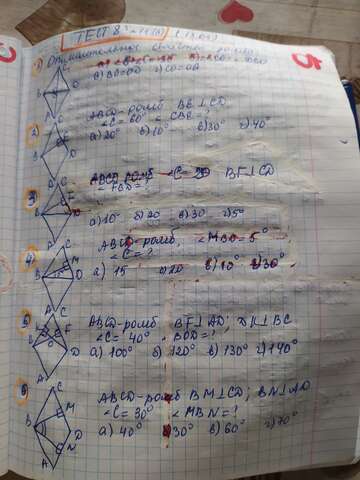 ТЕСТ 8
1) Отличительные свойства ромба
а) ∠B=∠C=90° б) ∠ABD = ∠DBC
в) BO=OD г) CO=OA
2) ABCD-ромб BE⊥CD
∠C=60° ∠CBE=?
а) 20° б) 10° в) 30° г) 40°
3) ABCD ромб ∠C=20 BF⊥CD
∠FBD=?
а) 10 б) 20 в) 30 г) 5°
4) ABCD-ромб, ∠MBD=5°
∠C=?
а) 15 б) 20 в) 10° г) 30°
5) ABCD-ромб BF⊥AD; DK⊥BC
∠C=40° ∠BOD=?
а) 100° б) 120° в) 130° г) 140°
6) ABCD-ромб BM⊥CD; BN⊥AD
∠C=30° ∠MBN=?
а) 40° б) 30° в) 60° г) 70°